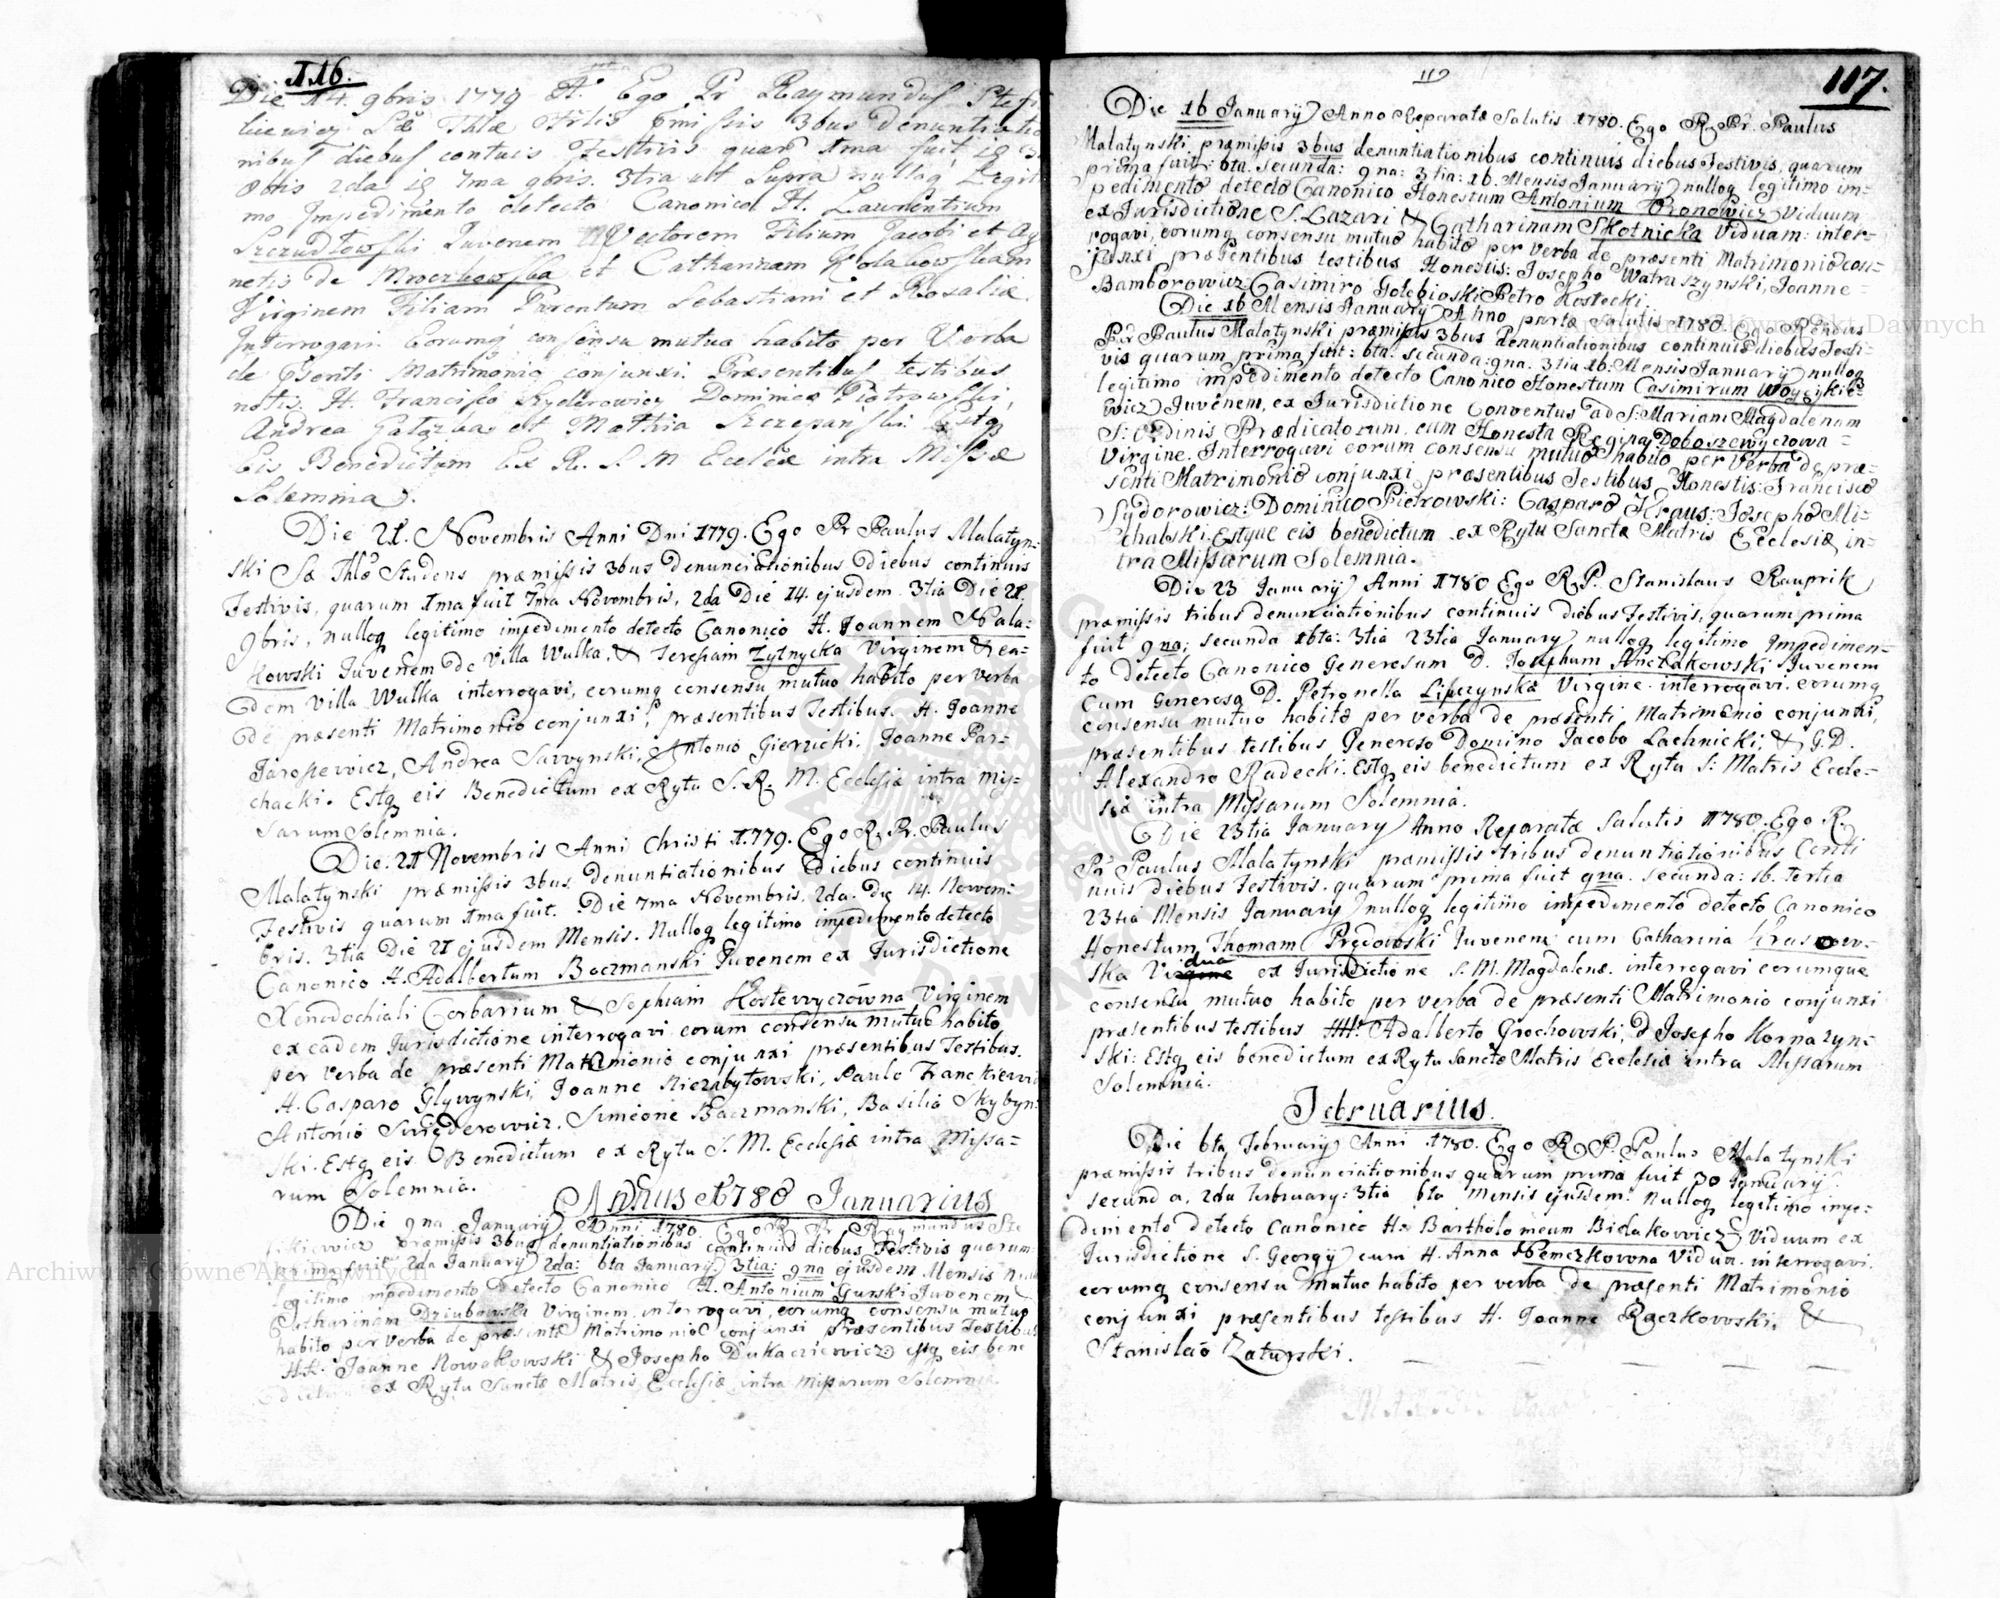 116.
Die 14. 9bris 1779 A. Ego Pr Raymunduſ
Sæ Thlæ 3bus denuntiatio
nibuſ diebuſ contuis Festivis quar 1ma fuit
2da 7ma 9bris. 3tia ut Supra nulloq Legit
mo Impedimento detecto Canonico H. Laurentium
Szczudłowſki Juvenem Filium Jacobi et Ag
netis de et Catharinam
Virginem Filiam Parentum Sebastiani et Rosaliæ.
Interrogavi Eorumq conſenſu mutuo habito per Verba
de Pſenti Matrimonio conjunxi. Præsentibuſ testibus
notis. H. Franciſco Syderowicz Dominico Piotrowſki,
Andrea et Mathia Szczepanſki Estq
Eis Benedictum Ex R. S. M Eccleæ intra Miſſæ
Solemnia.
Die 21. Novembris Anni Dni 1779. Ego Pr Paulus Malatyn-
ski Sæ Thlæ Studens præmiſsis 3bus denunciationibus Diebus continuis
Festivis, quarum 1ma fuit 7ma Novembris, 2da Die 14. ejusdem 3tia Die 21.
9bris, nulloq legitimo impedimento detecto Canonico H. Joannem Nala-
kowski Juvenem de Villa Wulka, & Teresiam Zytnycka Virginem & ea-
dem Villa Wulka interrogavi, eorumq consensu mutuo habito per verba
de præsenti Matrimonio conjunxi, præsentibus Testibus. H. Joanne
Jaropewicz, Andrea Savvynski, Antonio Gierzicki, Joanne Par-
chacki. Estq eis Benedictum ex Rytu S. R. M. Ecclesiæ intra Mys-
sarum Solemnia.
Die. 21 Novembris Anni Christi 1779. Ego R. Pr. Paulus
Malatynski præmiſsis 3bus denuntiationibus Diebus continuis
Festivis quarum 1ma fuit. Die 7ma Novembris. 2da. Die 14. Novem-
bris. 3tia Die 21 ejusdem Mensis. Nulloq legitimo impedimento detecto
Canonico H. Adalbertum Baczmanski Juvenem ex Jurisdictione
Xenodochiali Corbarium & Sophiam Kostevvyczowna Virginem
ex eadem Jurisdictione interrogavi eorum consensu mutuo habito
per verba de præsenti Matrimonio conjunxi præsentibus Testibus.
H. Gasparo Glyvvynski, Joanne Niezabytowski, Paulo
Antonio Swiederowicz, Simeone Baczmanski, Basilio Skybyn-
ski. Estq eis Benedictum ex Rytu S. M. Ecclesiæ intra Missa-
rum Solemnia.
Annus 1780 Januarius
Die 9na Januarij Anni 1780 Ego R Pr Raymundus Ste
fikiewicz præmiſsis 3bus denuntiationibus continuis diebus Festivis quarum
prima fuit 2da January 2da: 6ta January 3tia: 9na ejusdem Mensis
legitimo impedimento Detecto Canonico H. Antonium Gurski Juvenem
Catharinam Dziubowski Virginem interrogavi, eorumq consensu mutuo
habito per verba de præsenti Matrimonio conjunxi Præsentibus Testibus
HH. Joanne Nowakowski & Josepho Dukacziewicz estq eis bene
ex Rytu Sanctæ Matris Ecclesiæ intra Missarum Solemnia.
117.
Die 16 Januarij Anno Reparatæ Salutis 1780. Ego R. Pr. Paulus
Malatynski præmiſsis 3bus denuntiationibus continuis diebus Festivis, quarum
prima fuit: 6ta. Secunda: 9na: 3tia: 16. Mensis Januarij nulloq legitimo im-
pedimento detecto Canonico Honestum Antonium Viduum
ex Jurisdictione S. Lazari & Catharinam Skotnicka Viduam: inter-
rogavi, eorumq consensu mutuo habito per verba de præsenti Matrimonio con-
junxi præsentibus testibus Honestis: Josepho Watraszynski, Joanne
Bamborowicz Casimiro Golębioski Petro Kostecki.
Die 16 Mensis Januarij Anno partæ Salutis 1780. Ego Rendus
Per Paulus Malatynski præmiſsis 3bus denuntiationibus continuis diebus Festi-
vis quarum prima fuit: 6ta. Secunda: 9na. 3tia 16. Mensis Januarij nulloq
legitimo impedimento detecto Canonico Honestum Casimirum
wicz Juvenem, ex Jurisdictione Conventus ad S. Mariam Magdalenam
S: Ordinis Prædicatorum, cum Honesta Regina Doboszewyczowa
Virgine. Interrogavi eorum consensu mutuo habito per verba de præ-
senti Matrimonio conjunxi præsentibus Testibus Honestis: Francisco
Sydorowicz: Dominico Pietrowski: Gasparo Kraus: Josepho Mi-
chalski. Estque eis benedictum ex Rytu Sanctæ Matris Ecclesiæ in-
tra Missarum Solemnia.
Die 23 January Anni 1780 Ego R. P. Stanislaus Rauprik
præmiſsis tribus denunciationibus continuis diebus Festivis, quarum prima
fuit 9na; secunda 16ta: 3tia 23tia January nulloq legitimo Impedimen-
to detecto Canonico Generosum D. Josephum Juvenem
Cum Generosa D. Petronella Lipczynska Virgine interrogavi. eorumq
consensu mutuo habito per verba de præsenti Matrimonio conjunxi,
præsentibus testibus Generoso Domino Jacobo Lachnicki, & G. D.
Alexandro Radecki. Estq eis benedictum ex Rytu S: Matris Eccle-
siæ intra Missarum Solemnia.
Die 23tia January Anno Reparatæ Salutis 1780. Ego R.
Pr Paulus Malatynski præmissis tribus denuntiationibus Conti
nuis diebus Festivis. quarum prima fuit 9na. Secunda: 16. tertia
23tia Mensis January nulloq legitimo impedimento detecto Canonico
Honestum Thomam Prędowski Juvenem cum Catharina
ska Vidua ex Jurisdictione S. M. Magdalenæ. interrogavi eorumque
consensu mutuo habito per verba de præsenti Matrimonio conjunxi
præsentibus testibus HH: Adalberto Grochowski, & Josepho Kornazyn-
ski: Estq eis benedictum ex Rytu Sanctæ Matris Ecclesiæ intra Missarum
Solemnia.
Februarius.
Die 6ta February Anni 1780. Ego R. P. Paulus Malatynski
præmissis tribus denunciationibus quarum prima fuit 30 January.
secunda, 2da February: 3tia 6ta Mensis ejusdem. Nulloq legitimo impe-
dimento detecto Canonico H. Bartholomeum Bielakowicz Viduum ex
Jurisdictione S. Georgy cum H. Anna Niemczkovvna Vidua. interrogavi.
eorumq consensu mutuo habito per verba de præsenti Matrimonio
conjunxi præsentibus testibus H. Joanne Raczkovvski, &
Stanislao Zaturski.
Archiwum Główne Akt Dawnych
Archiwum Główne Akt Dawnych